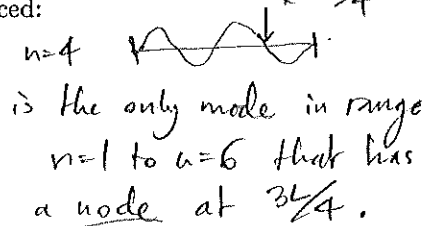 ced:
n=4
is the only mode in range
n=1 to n=6 that has
a node at 3L/4.